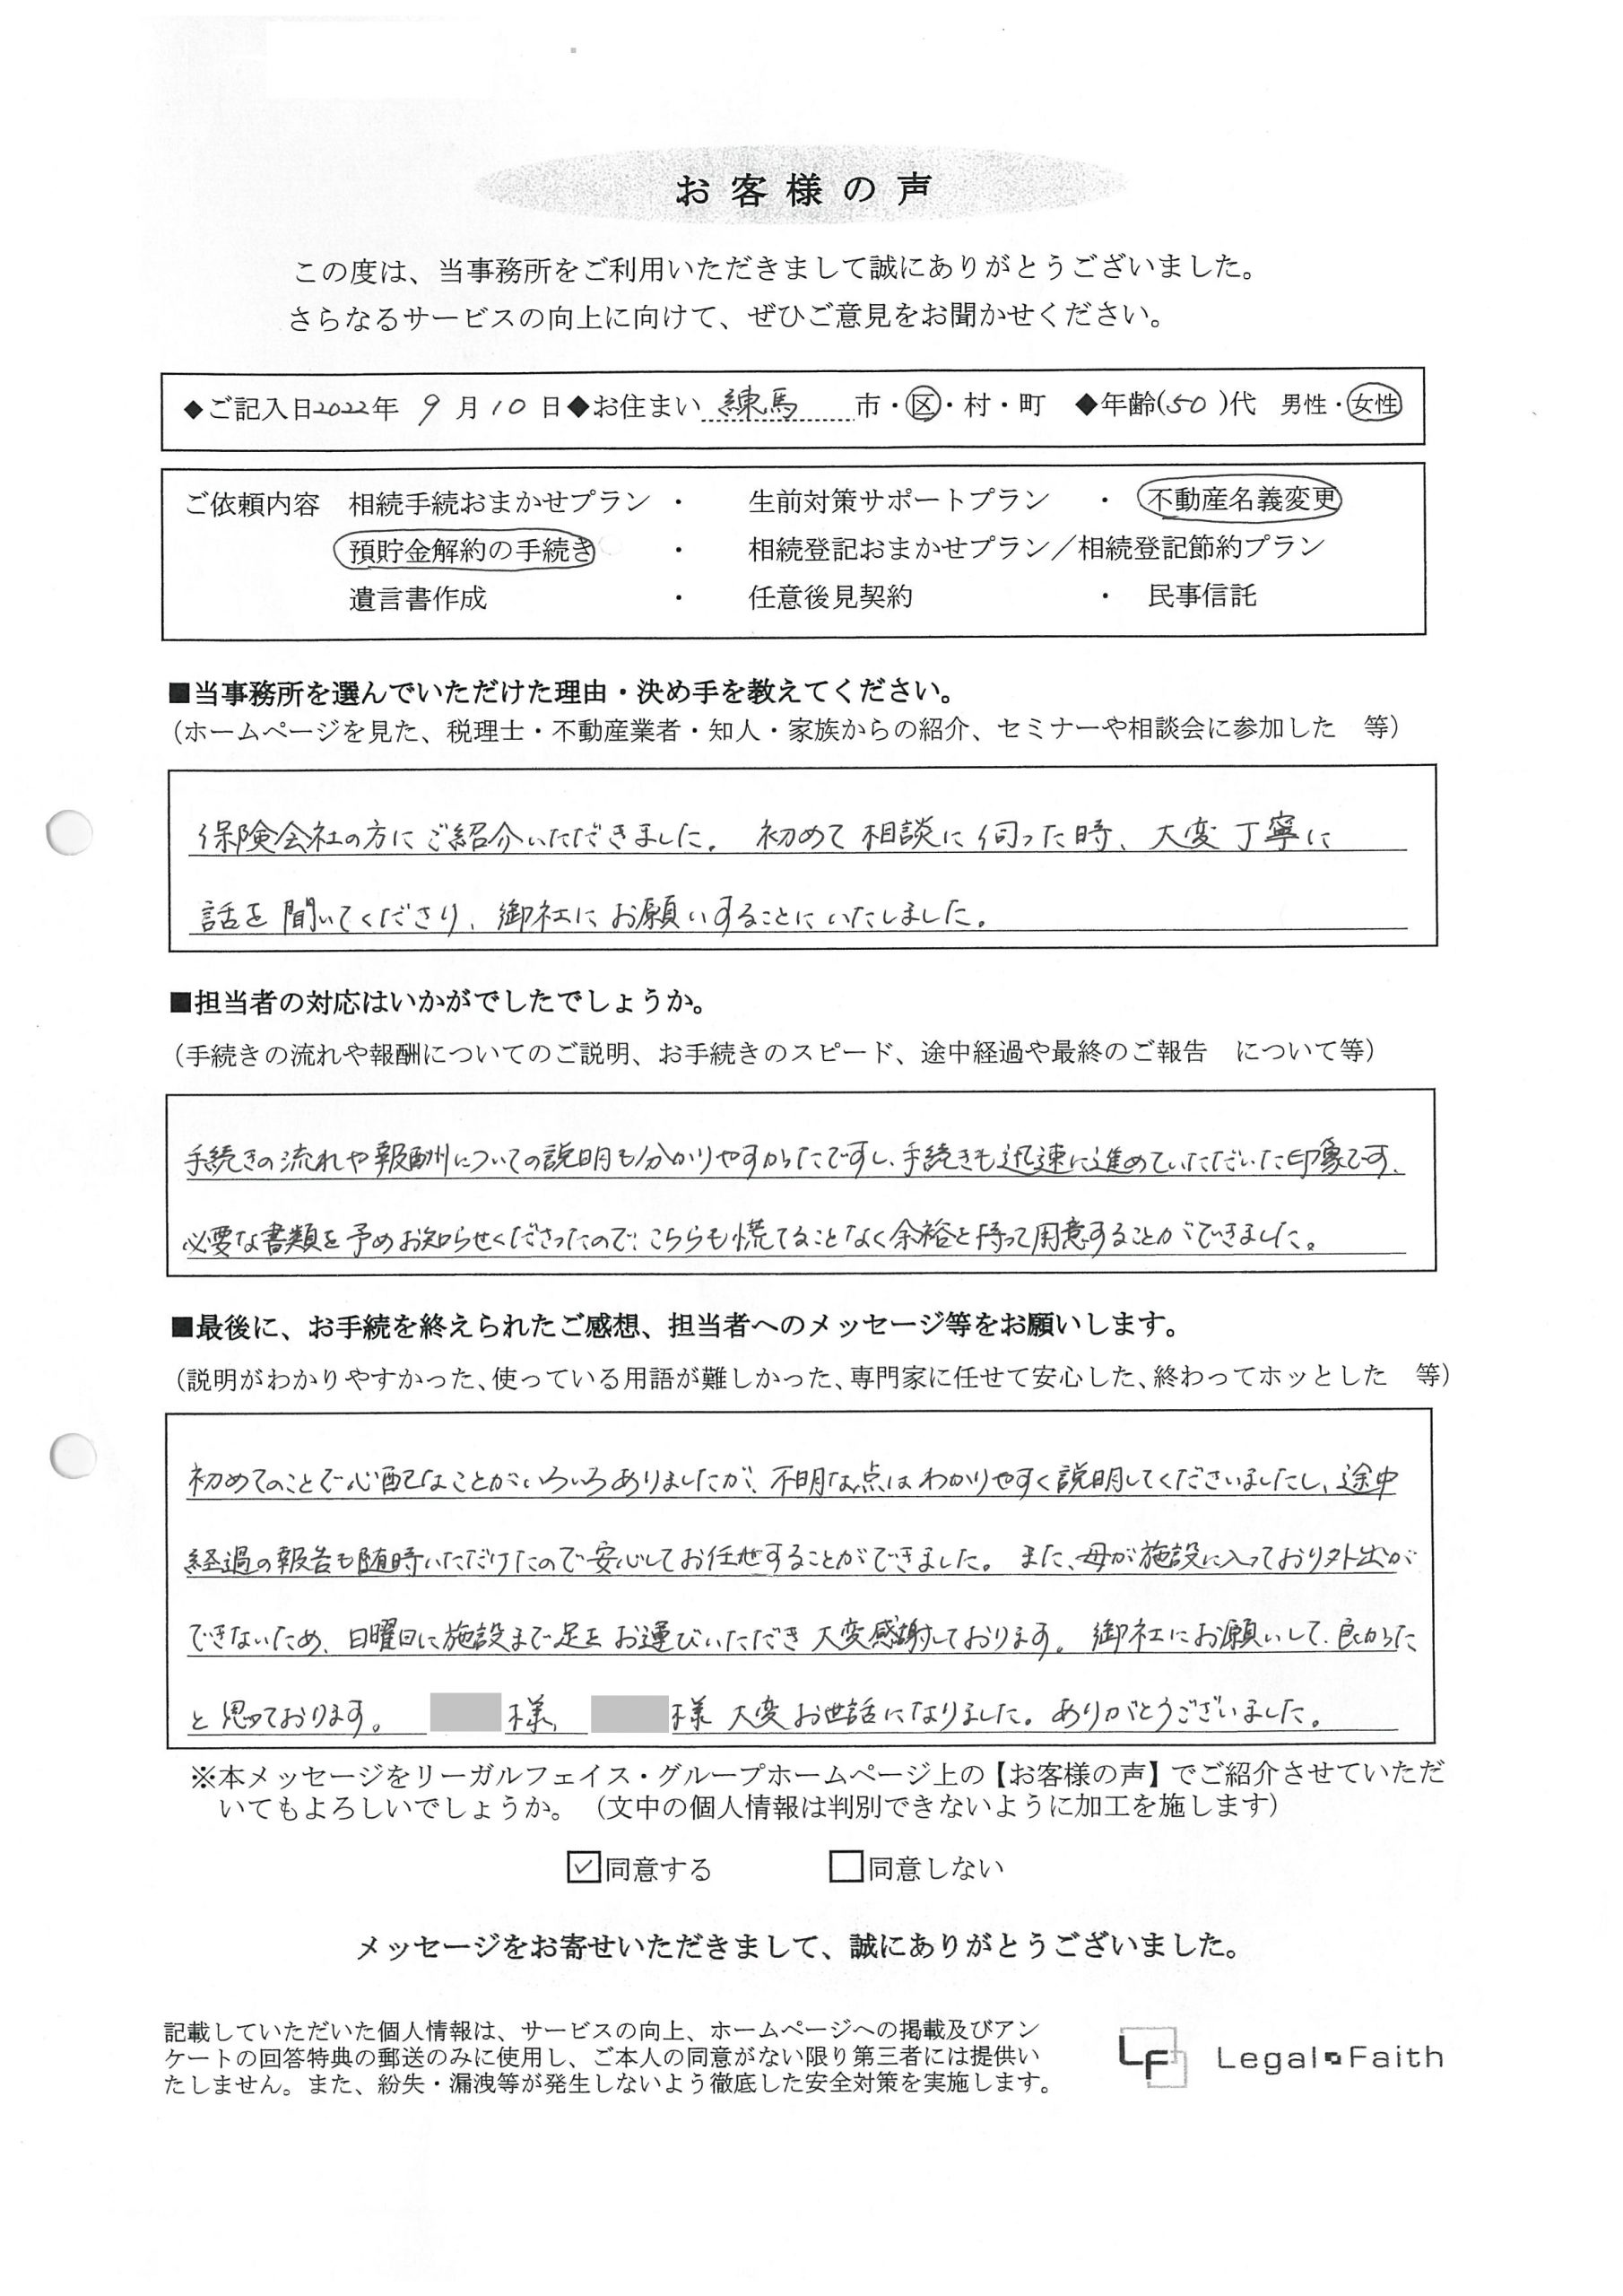 お客様の声
この度は、当事務所をご利用いただきまして誠にありがとうございました。
さらなるサービスの向上に向けて、ぜひご意見をお聞かせください。
◆ご記入日2022年 9 月 10 日◆お住まい 練馬 市・区・村・町 ◆年齢(50 )代 男性・女性
ご依頼内容 相続手続おまかせプラン ・ 生前対策サポートプラン ・ 不動産名義変更
預貯金解約の手続き ・ 相続登記おまかせプラン／相続登記節約プラン
遺言書作成 ・ 任意後見契約 ・ 民事信託
■当事務所を選んでいただけた理由・決め手を教えてください。
（ホームページを見た、税理士・不動産業者・知人・家族からの紹介、セミナーや相談会に参加した 等）
保険会社の方にご紹介いただきました。 初めて相談に伺った時、大変丁寧に
話を聞いてくださり、御社にお願いすることにいたしました。
■担当者の対応はいかがでしたでしょうか。
（手続きの流れや報酬についてのご説明、お手続きのスピード、途中経過や最終のご報告 について等）
手続きの流れや報酬についての説明も分かりやすかったですし、手続きも迅速に進めていただいた印象です。
必要な書類を予めお知らせくださったので、こちらも慌てることなく余裕を持って用意することができました。
■最後に、お手続を終えられたご感想、担当者へのメッセージ等をお願いします。
（説明がわかりやすかった、使っている用語が難しかった、専門家に任せて安心した、終わってホッとした 等）
初めてのことで心配なことがいろいろありましたが、不明な点はわかりやすく説明してくださいましたし、途中
経過の報告も随時いただけたので安心してお任せすることができました。また、母が施設に入っており外出が
できないため、日曜日に施設まで足をお運びいただき大変感謝しております。御社にお願いして良かった
と思っております。 様、 様 大変お世話になりました。ありがとうございました。
※本メッセージをリーガルフェイス・グループホームページ上の【お客様の声】でご紹介させていただ
いてもよろしいでしょうか。（文中の個人情報は判別できないように加工を施します）
☑同意する □同意しない
メッセージをお寄せいただきまして、誠にありがとうございました。
記載していただいた個人情報は、サービスの向上、ホームページへの掲載及びアン
ケートの回答特典の郵送のみに使用し、ご本人の同意がない限り第三者には提供い
たしません。また、紛失・漏洩等が発生しないよう徹底した安全対策を実施します。
LF Legal Faith